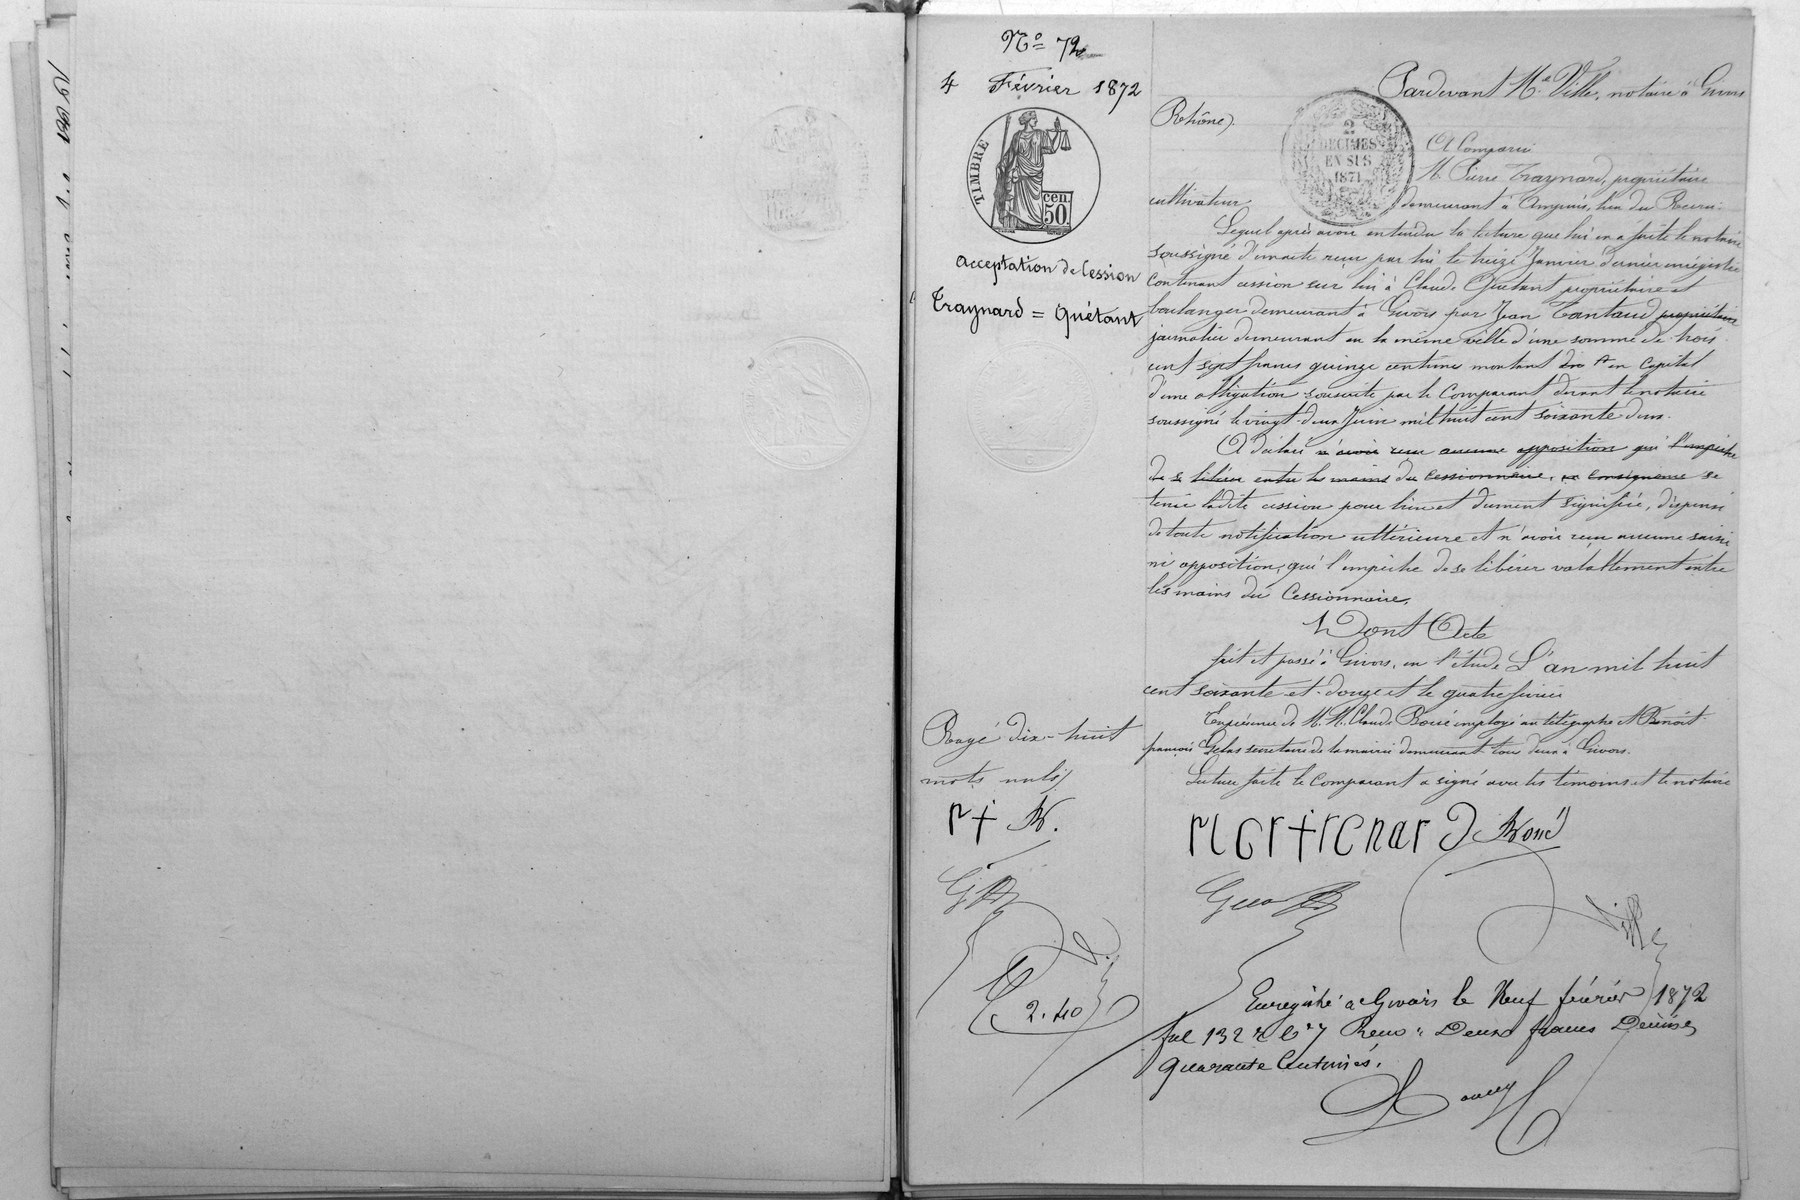 N° 72
4 Février 1872
TIMBRE
cen.
50.
Acceptation de Cession
Traynard = Quétant
2
DECIMES
EN SUS
1871
Pardevant Me Ville, notaire à Givors
Rhône).
A Comparu
M. Pierre Traynard, propriétaire
cultivateur, demeurant à Ampuis, lieu du
Lequel après avoir entendu la lecture que lui en a faite le notaire
soussigné d'un acte reçu par lui le treize Janvier dernier enregistré
contenant cession sur lui à Claude Quétant propriétaire et
boulanger demeurant à Givors par Jean Tantaud propriétaire
journalier demeurant en la même ville d'une somme de trois
cent sept francs quinze centimes montant en capital
d'une obligation souscrite par le Comparant devant le notaire
soussigné le vingt-deux Juin mil huit cent soixante deux.
A déclaré n'avoir reçu aucune opposition qui l'empêche
de se libérer entre les mains du cessionnaire, en conséquence se
tenir ladite cession pour bien et dument signifiée, dispense
de toute notification ultérieure et n'avoir reçu aucune saisie
ni opposition, qui l'empêche de se libérer valablement entre
les mains du Cessionnaire.
Dont Acte
fait et passé à Givors, en l'étude L'an mil huit
cent soixante-et-douze et le quatre février
En présence de M. M. Claude Boué employé au télégraphe et Benoît
françois Gelas secrétaire de la mairie demeurant tous deux à Givors.
Lecture faite le comparant a signé avec les témoins et le notaire
Rayé dix-huit
mots nuls
Boué
Ville
2.40
Enregistré à Givors le Neuf février 1872
fol 132 Rc 7 Reçu Deux francs Décimes
quarante Centimes.